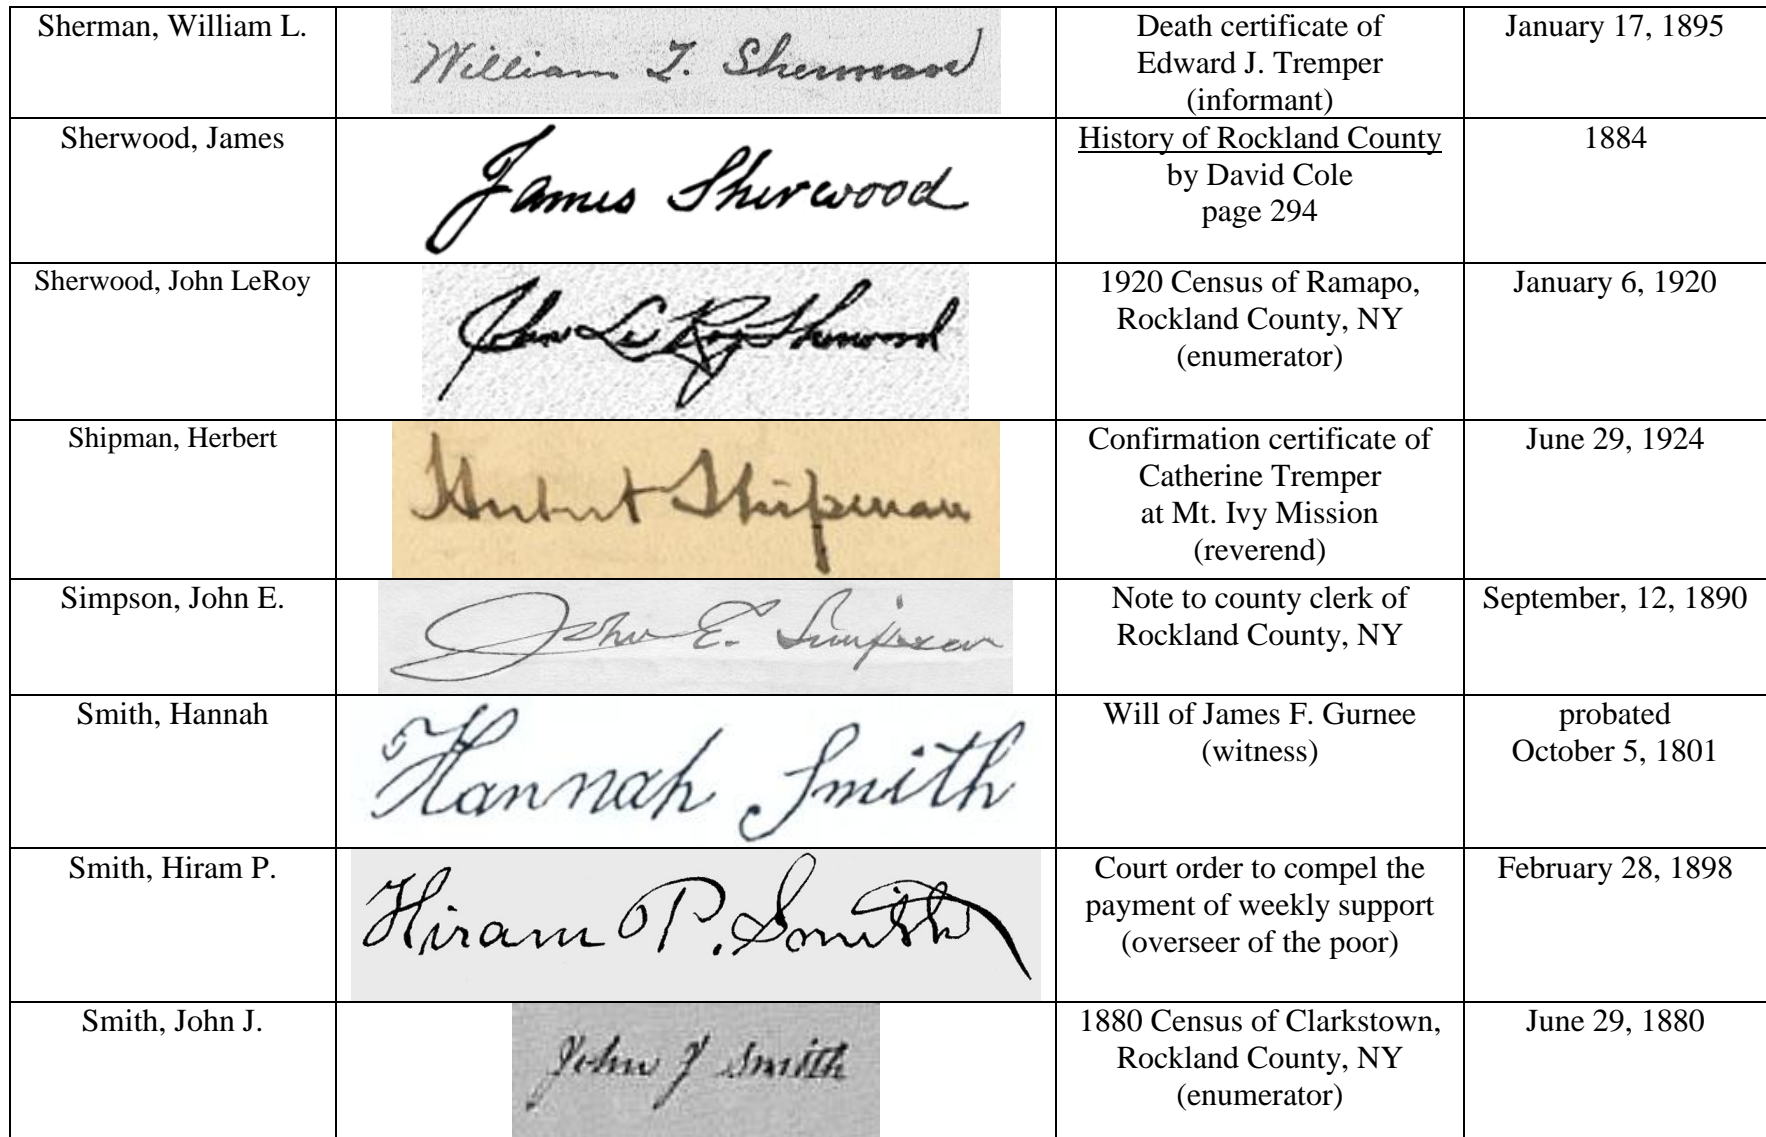 Sherman, William L.
William L. Sherman
Death certificate of
Edward J. Tremper
(informant)
January 17, 1895
Sherwood, James
James Sherwood
History of Rockland County
by David Cole
page 294
1884
Sherwood, John LeRoy
John Le Roy Sherwood
1920 Census of Ramapo,
Rockland County, NY
(enumerator)
January 6, 1920
Shipman, Herbert
Herbert Shipman
Confirmation certificate of
Catherine Tremper
at Mt. Ivy Mission
(reverend)
June 29, 1924
Simpson, John E.
John E. Simpson
Note to county clerk of
Rockland County, NY
September, 12, 1890
Smith, Hannah
Hannah Smith
Will of James F. Gurnee
(witness)
probated
October 5, 1801
Smith, Hiram P.
Hiram P. Smith
Court order to compel the
payment of weekly support
(overseer of the poor)
February 28, 1898
Smith, John J.
John J Smith
1880 Census of Clarkstown,
Rockland County, NY
(enumerator)
June 29, 1880